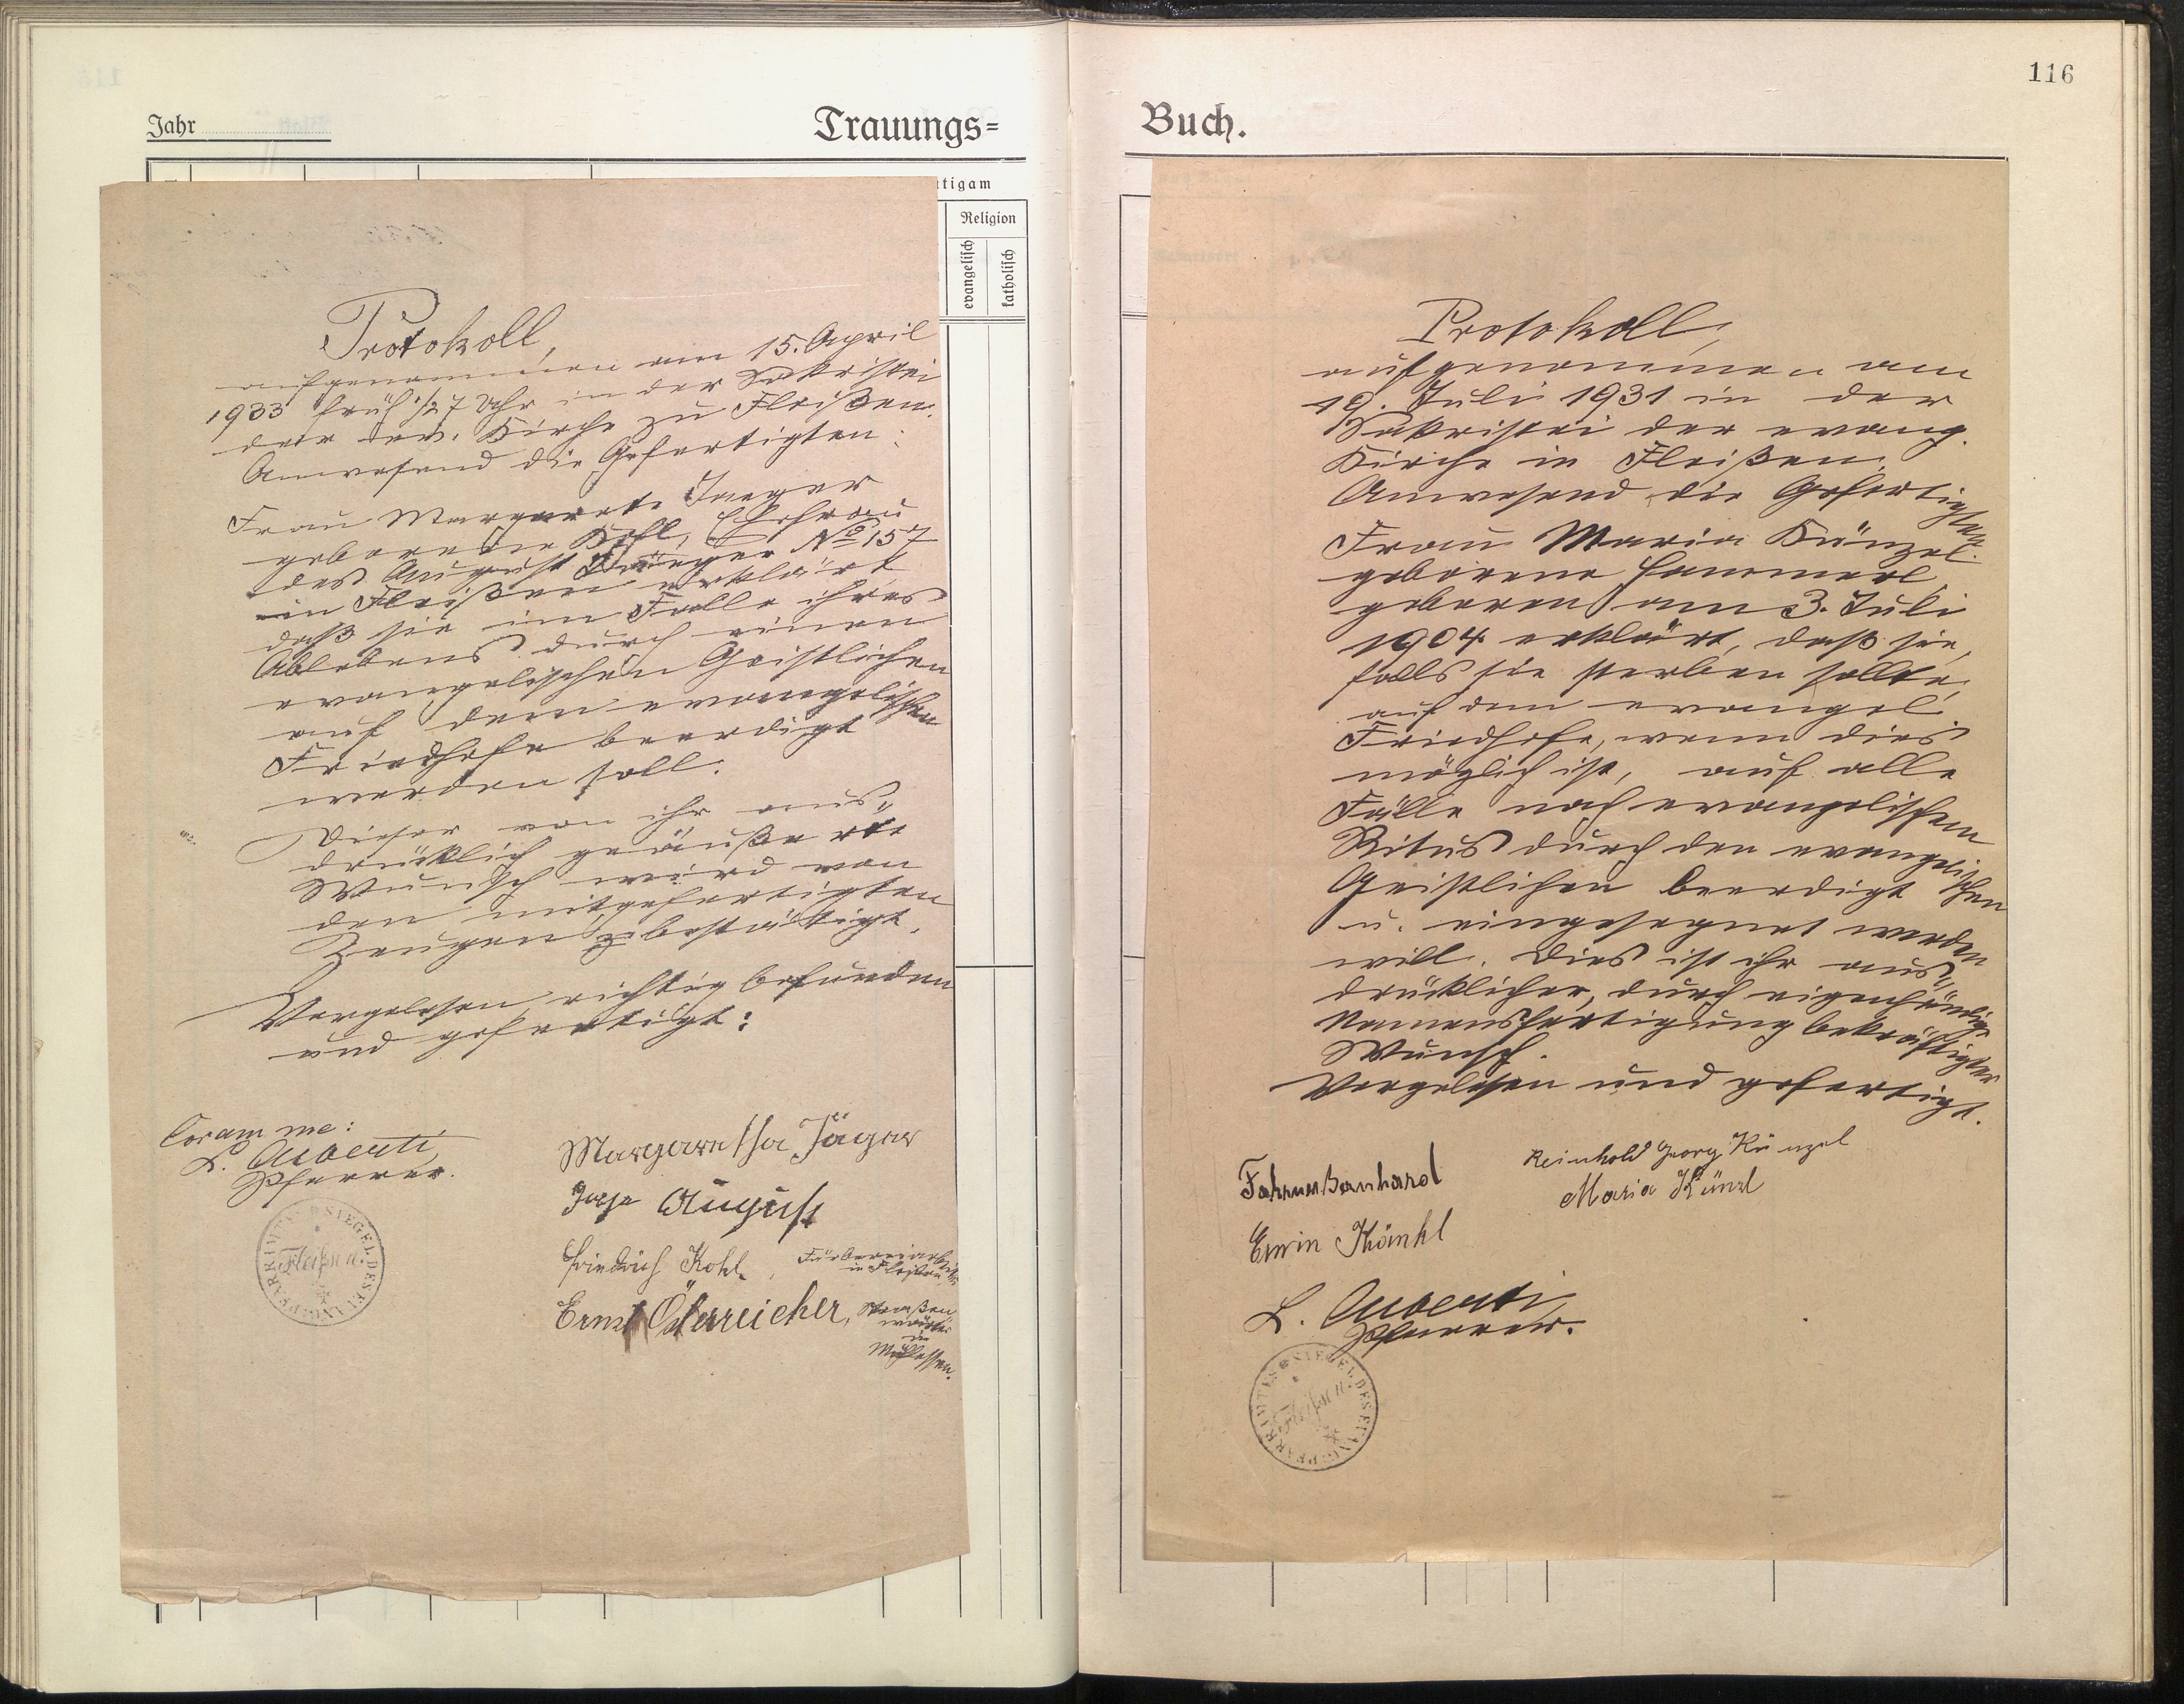 Jahr
Trauungs=
tigam
Religion
evangelisch
katholisch
Protokoll,
aufgenommen am 15. April
1933 früh 1/27 Uhr in der Sakristei
der ev. Kirche zu Fleißen.
Anwesend die Gefertigten:
Frau Margarete Jaeger
geborene Kohl, Ehefrau
des August Jaeger No 157
in Fleißen erklärt
daß sie im Falle ihres
Ablebens durch einen
evangelischen Geistlichen
auf dem evangelischen
Friedhofe beerdigt
werden soll.
Dieser von ihr aus=
drücklich geäußerte
Wunsch wird von
den mitgefertigten
Zeugen bestätigt.
Vorgelesen, richtig befunden
und gefertigt:
Coram me:
L. Auberti
Pfarrer.
SIEGEL DES EVANG. PFARRAMTES
Fleißen.
Margaretha Jäger
August
Friedrich Kohl, Färbereiarbeiter
in Fleißen
Ernst Österreicher, Straßen
wärter
in
Mühlessen.
116
Buch.
Protokoll,
aufgenommen am
19. Juli 1931 in der
Sakristei der evang.
Kirche in Fleißen.
Anwesend die Gefertigten.
Frau Maria Künzel
geborene Hammerl,
geboren am 3. Juli
1904 erklärt, daß sie,
falls sie sterben sollte,
auf dem evangel.
Friedhofe, wenn dies
möglich ist, auf alle
Fälle nach evangelischem
Ritus durch den evangelischen
Geistlichen beerdigt
u. eingesegnet werden
will. Dies ist ihr aus=
drücklicher, durch eigenhändige
Namensfertigung bekräftigter
Wunsch.
Vorgelesen und gefertigt.
Reinhold Georg Künzel
Bernhard
Maria Künzl
Erwin Künkl
L. Auberti
Pfarrer.
SIEGEL DES EVANG. PFARRAMTES
Fleißen.